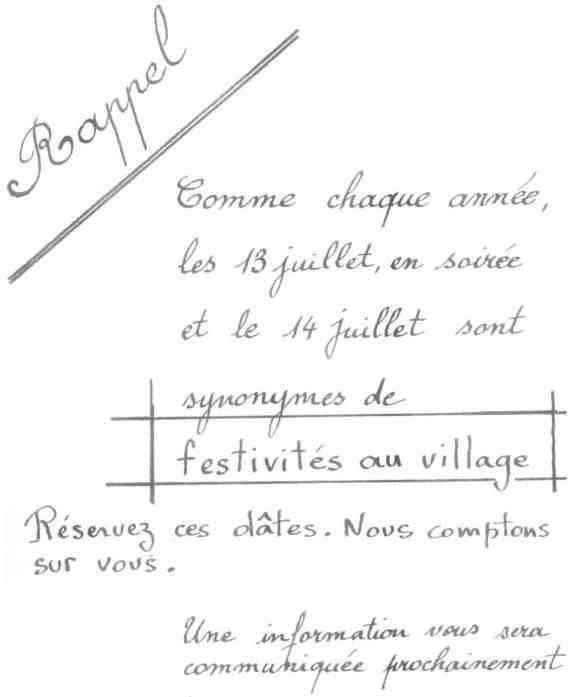 Rappel
Comme chaque année,
les 13 juillet, en soirée
et le 14 juillet sont
synonymes de
festivités au village
Réservez ces dâtes. Nous comptons
sur vous.
Une information vous sera
communiquée prochainement